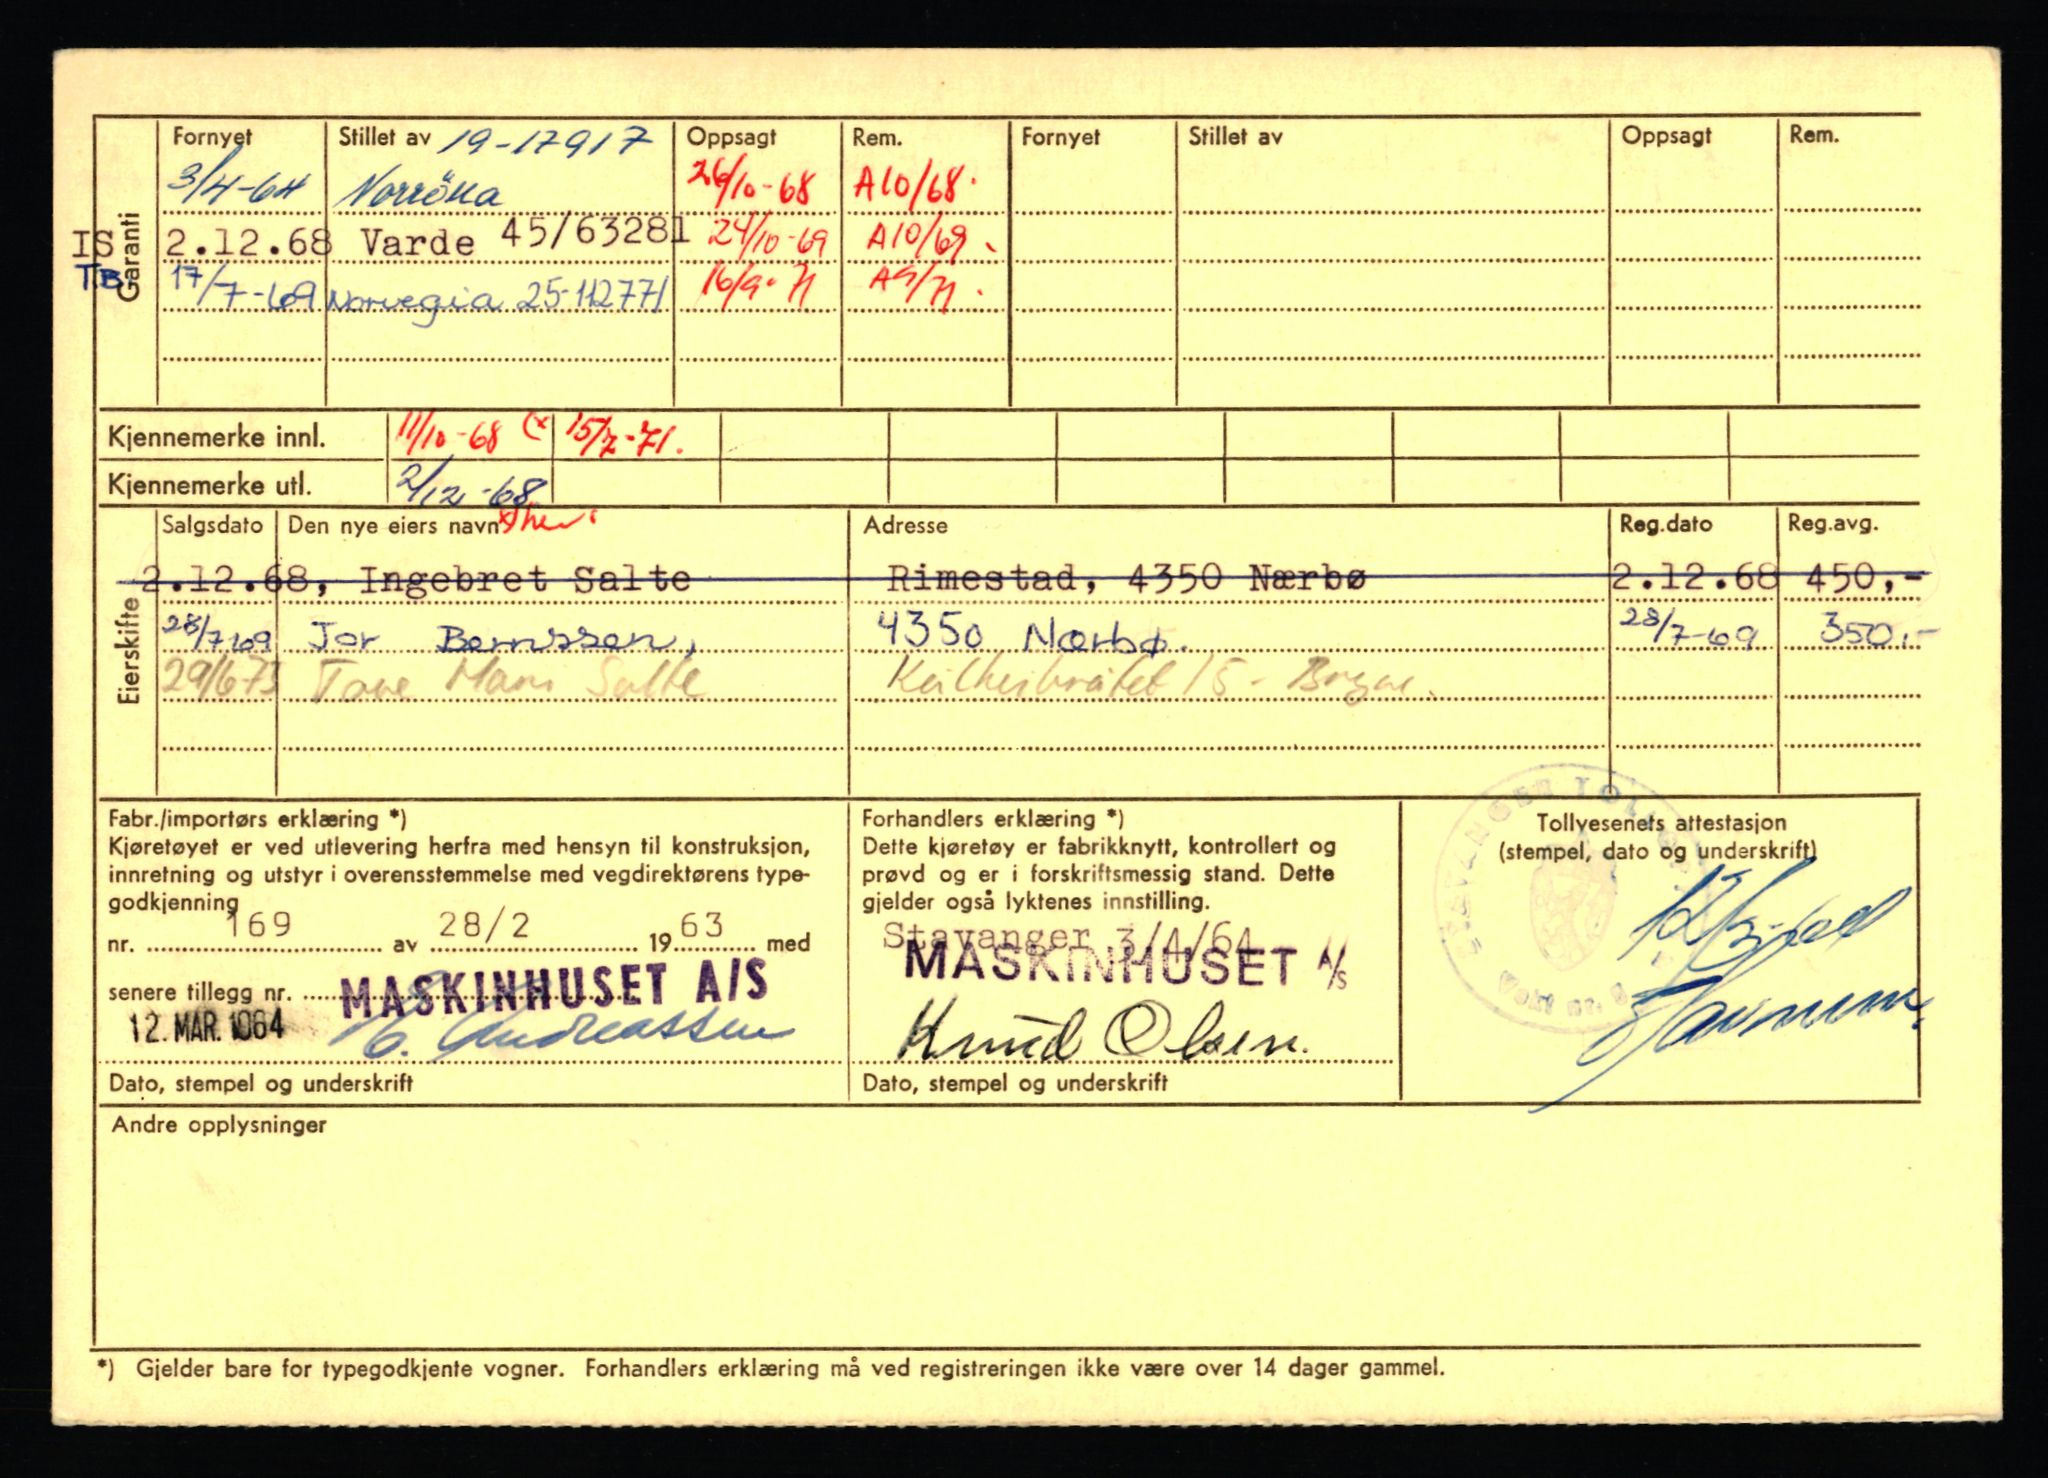 Fornyet Stillet av 19-17917 Oppsagt Rem. Fornyet Stillet av Oppsagt Rem.
Garanti
3/4-64 Norröna 26/10-68 A10/68.
IS 2.12.68 Varde 45/63281 24/10-69 A10/69.
TB 17/7-69 Norvegia 25-112771 16/9-71 A9/71.
Kjennemerke innl. 11/10-68 (x 15/7-71.
Kjennemerke utl. 2/12-68
Eierskifte
Salgsdato Den nye eiers navn Adresse Reg.dato Reg.avg.
2.12.68, Ingebret Salte Rimestad, 4350 Nærbø 2.12.68 450,-
28/7-69 Jor Berntssen, 4350 Nærbø. 28/7-69 350.-
29/6 73 Tove Salte 15 - Bryne.
Fabr./importørs erklæring *)
Kjøretøyet er ved utlevering herfra med hensyn til konstruksjon,
innretning og utstyr i overensstemmelse med vegdirektørens type-
godkjenning
nr. 169 av 28/2 1963 med
senere tillegg nr.
MASKINHUSET A/S
12. MAR. 1964
Andreassen
Dato, stempel og underskrift
Forhandlers erklæring *)
Dette kjøretøy er fabrikknytt, kontrollert og
prøvd og er i forskriftsmessig stand. Dette
gjelder også lyktenes innstilling.
Stavanger 3/4/64
MASKINHUSET A/S
Knud Olsen.
Dato, stempel og underskrift
Tollvesenets attestasjon
(stempel, dato og underskrift)
Andre opplysninger
*) Gjelder bare for typegodkjente vogner. Forhandlers erklæring må ved registreringen ikke være over 14 dager gammel.